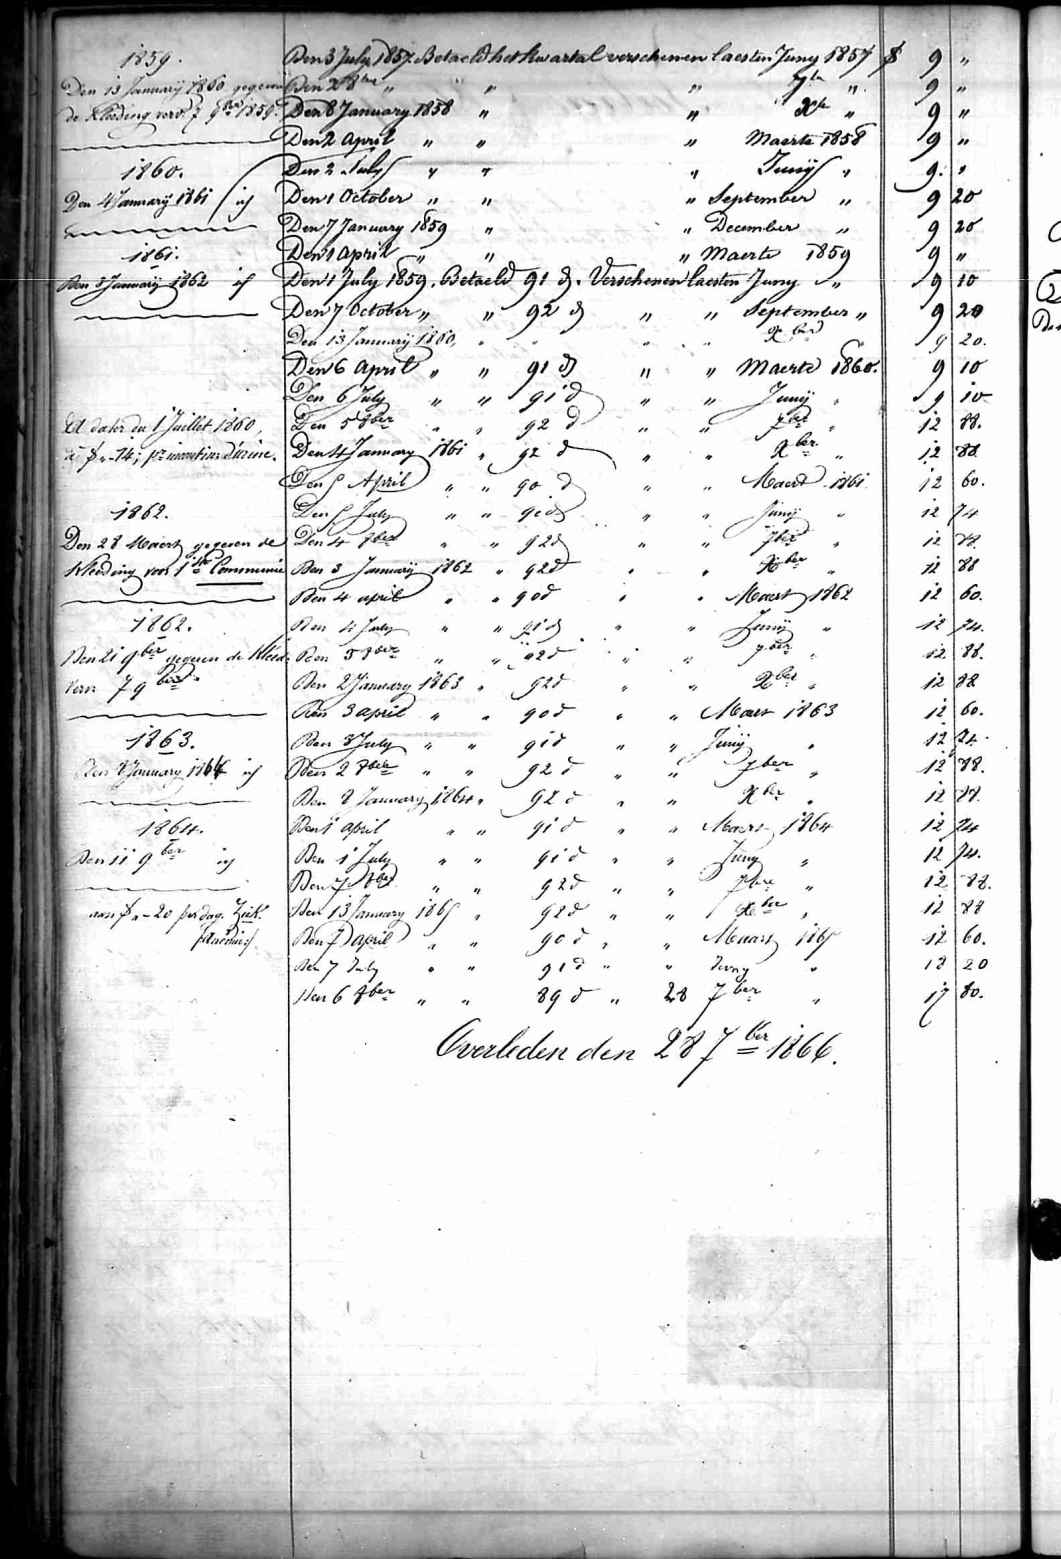 1859.
Den 13 January 1860 gegeven
de kleeding voor 7 9ber 1859.
1860.
Den 4 January 1861 id
1861.
Den 3 January 1862 id
A dater du 1 Juillet 1860,
à fr -.14;
1862.
Den 28 Maert gegeven de
kleeding voor 1ste Communie
1862.
Den 21 9ber gegeven de kleed.
vern 7 9ber
1863.
Den 8 January 1864 id
1864.
Den 11 9ber id
aan fr „-20 per dag.
Den 3 July 1857. Betaeld het kwartal verschenen laesten Juny 1857 fr 9 „
Den 2 8bre „ „ „ 7bre „ 9 „
Den 8 January 1858 „ „ Xbre „ 9 „
Den 2 April „ „ „ Maerte 1858 9 „
Den 2 July „ „ „ Junij „ 9 „
Den 1 October „ „ „ September „ 9 20
Den 7 January 1859 „ „ December „ 9 20
Den 1 April „ „ „ Maerte 1859 9 „
Den 1 July 1859. Betaeld 91 d. Verschenen laesten Juny „ 9 10
Den 7 October „ „ 92 d „ „ September „ 9 20
Den 13 January 1860, „ „ „ „ Xber „ 9 20.
Den 6 April „ „ 91 d „ „ Maerte 1860. 9 10
Den 6 July „ „ 91 d „ „ Junij „ 9 10
Den 5 8ber „ „ 92 d „ „ 7ber „ 12 88.
Den 4 January 1861 „ 92 d „ „ Xber „ 12 88
Den 5 April „ „ 90 d „ „ Maert 1861 12 60.
Den 5 July „ „ 91 d „ „ Junij „ 12 74
Den 4 8ber „ „ 92 d „ „ 7ber „ 12 88
Den 3 January 1862 „ 92 d „ „ Xber „ 12 88
Den 4 april „ „ 90 d „ „ Maert 1862 12 60.
Den 4 July „ „ 91 d „ „ Junij „ 12 74.
Den 3 8ber „ „ 92 d „ „ 7ber „ 12 88.
Den 2 January 1863 „ 92 d „ „ Xber „ 12 88
Den 3 april „ „ 90 d „ „ Maert 1863 12 60.
Den 3 July „ „ 91 d „ „ Junij „ 12 74.
Den 2 8ber „ „ 92 d „ „ 7ber „ 12 88.
Den 8 January 1864 „ 92 d „ „ Xber „ 12 88
Den 1 april „ „ 91 d „ „ Maert 1864 12 74
Den 1 July „ „ 91 d „ „ Juny „ 12 74.
Den 7 8ber „ „ 92 d „ „ 7bre „ 12 88.
Den 13 January 1865 „ 92 d „ „ Xber „ 12 88
Den 7 april „ „ 90 d „ „ Maart 1865 12 60.
Den 7 July „ „ 91 d „ „ Juny „ 18 20
Den 6 8ber „ „ 89 d „ 28 7ber „ 17 80.
Overleden den 28 7ber 1866.